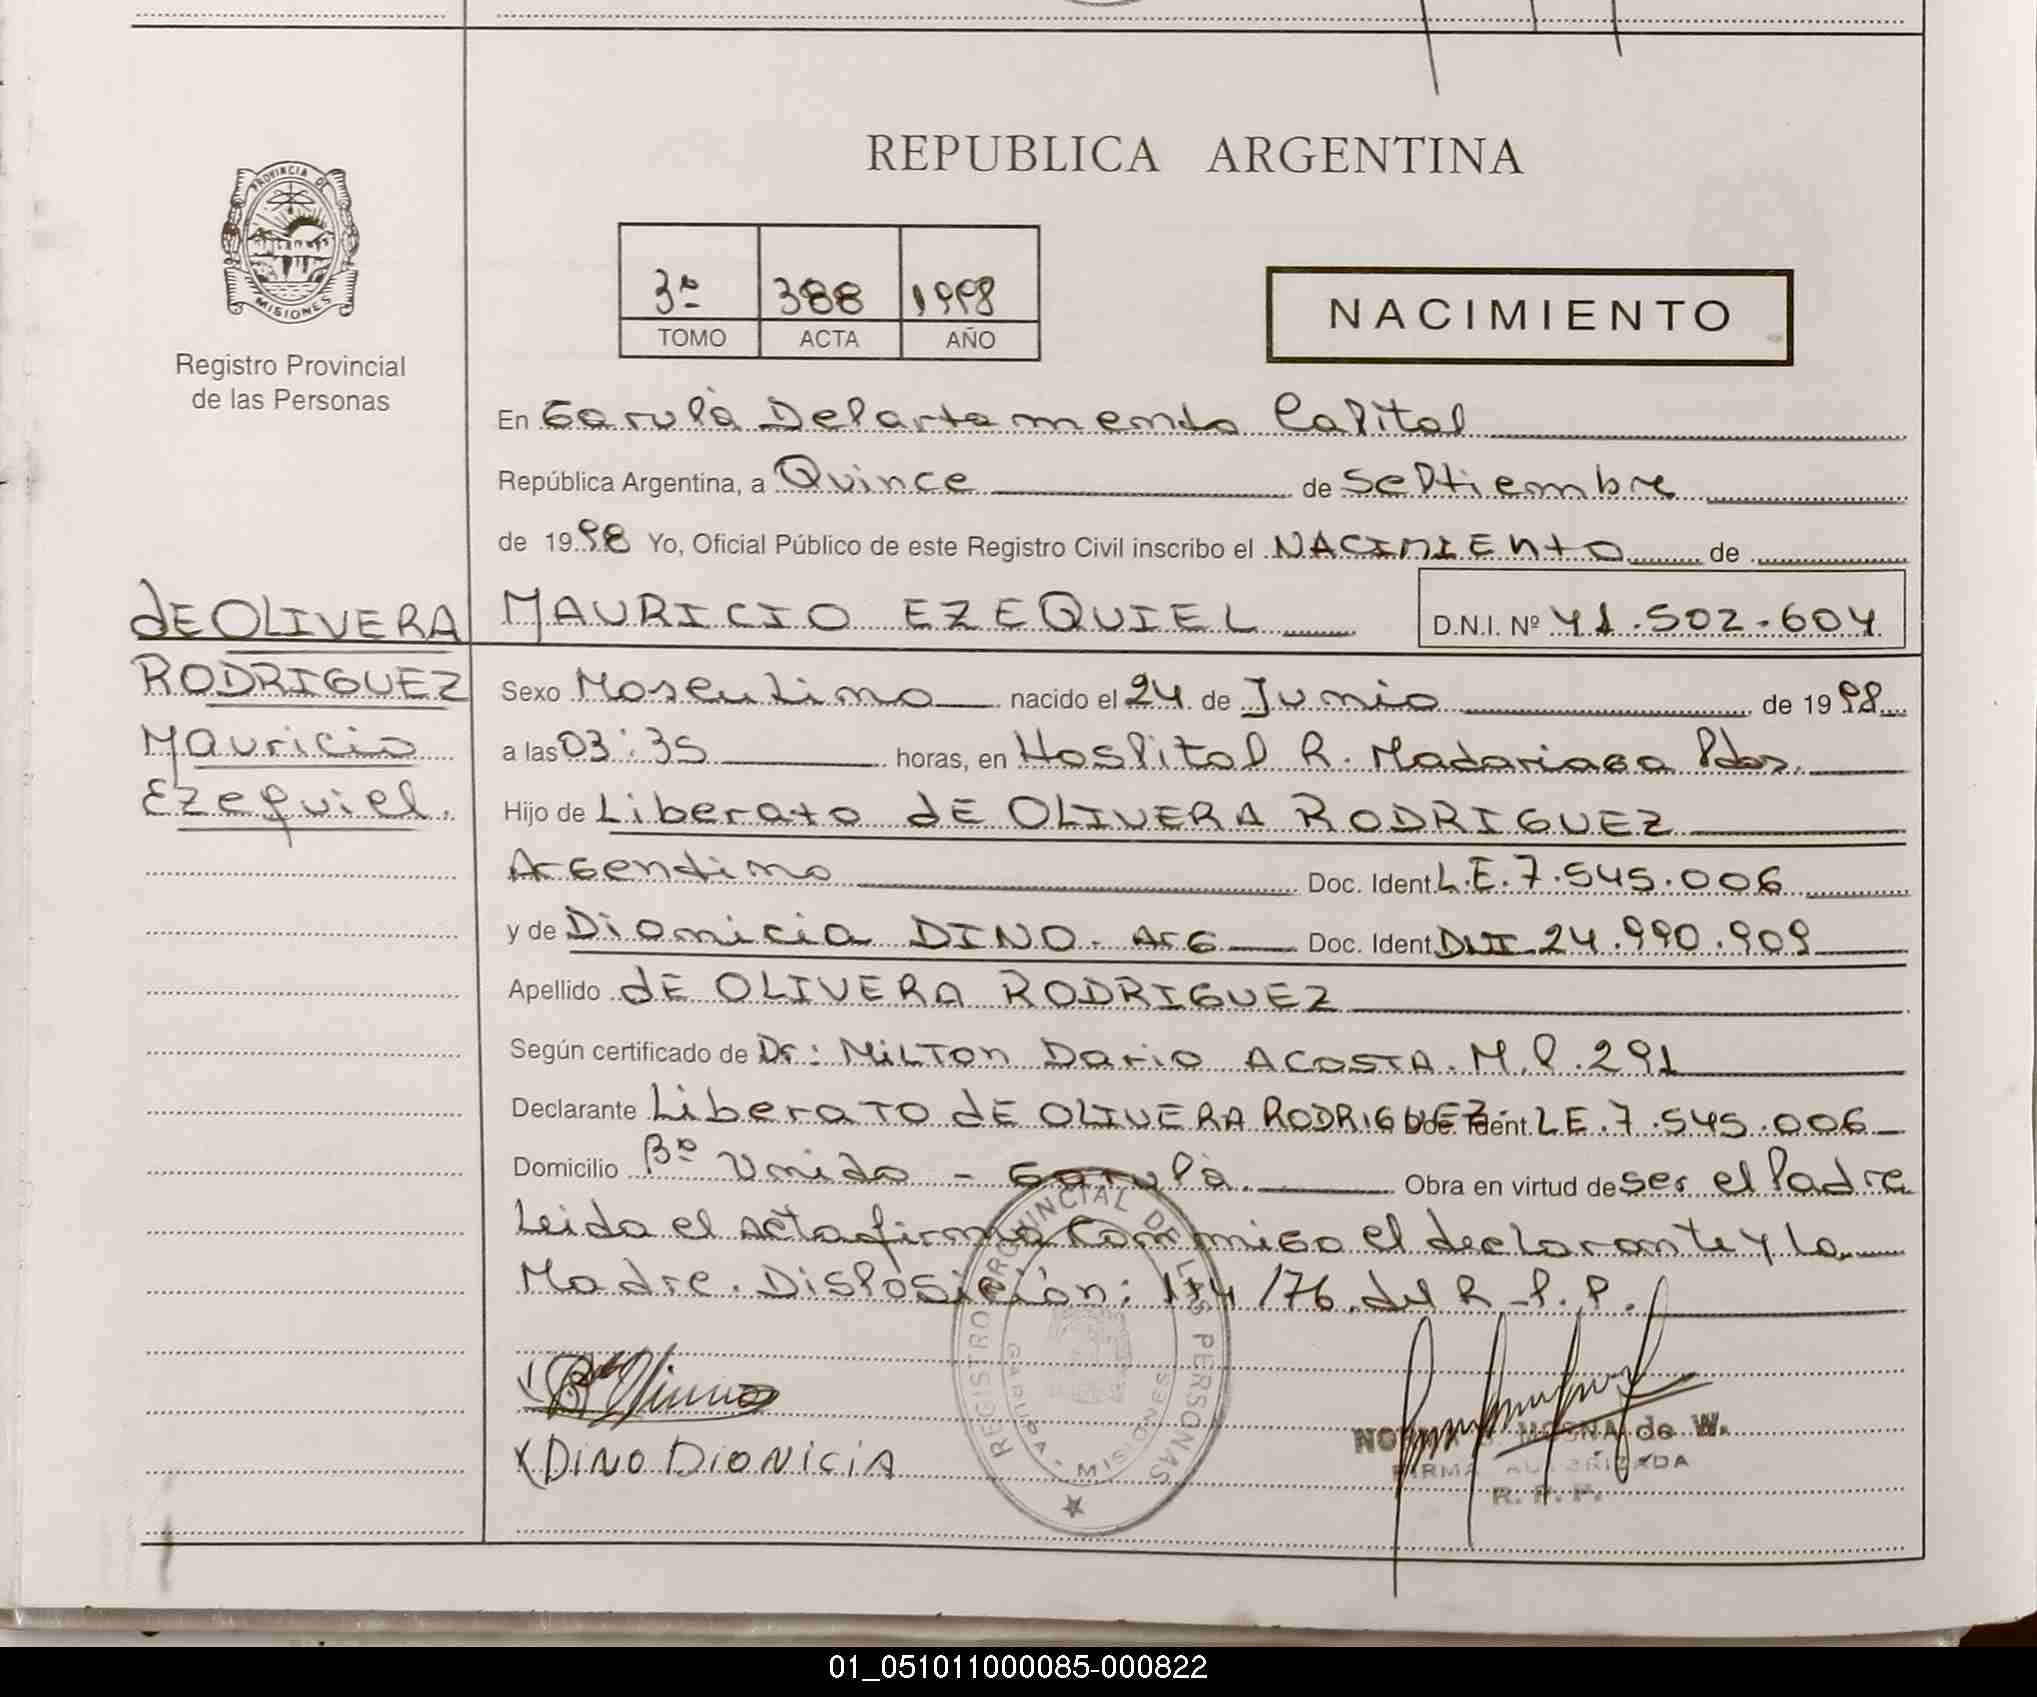 REPUBLICA ARGENTINA
PROVINCIA DE
MISIONES
Registro Provincial
de las Personas
3º 388 1998
TOMO ACTA AÑO
NACIMIENTO
En Garupá Departamento Capital
República Argentina, a Quince de Septiembre
de 1998 Yo, Oficial Público de este Registro Civil inscribo el NACIMIENTO de
MAURICIO EZEQUIEL D.N.I. Nº 41.502.604
dE OLIVERA
RODRIGUEZ
Mauricio
Ezequiel.
Sexo Masculino nacido el 24 de Junio de 1998
a las 03:35 horas, en Hospital R. Madariaga Pdas.
Hijo de Liberato dE OLIVERA RODRIGUEZ
Argentino Doc. Ident. L.E. 7.545.006
y de Dionicia DINO. Arg Doc. Ident. DNI 24.990.909
Apellido dE OLIVERA RODRIGUEZ
Según certificado de Dr: MiLTon Dario ACOSTA. M.P. 291
Declarante LiberaTO dE OLIVERA RODRIGUEZ. Doc. Ident. LE. 7.545.006
Domicilio Bº Unido - Garupá. Obra en virtud de ser el Padre
Leida el acta firma conmigo el declarante y la
Madre. Disposición: 174/76 del R.P.P.
REGISTRO PROVINCIAL DE LAS PERSONAS
GARUPA - MISIONES
X DiNO DiONiCiA
de W.
FIRMA AUTORIZADA
R. P. P.
01_051011000085-000822